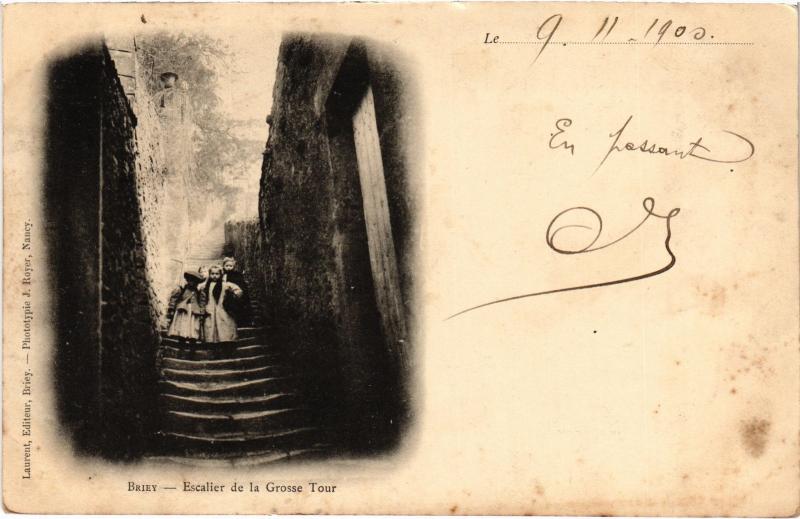 Le 9. 11. 1900.
En passant
BRIEY — Escalier de la Grosse Tour
Laurent, Editeur, Briey. — Phototypie J. Royer, Nancy.